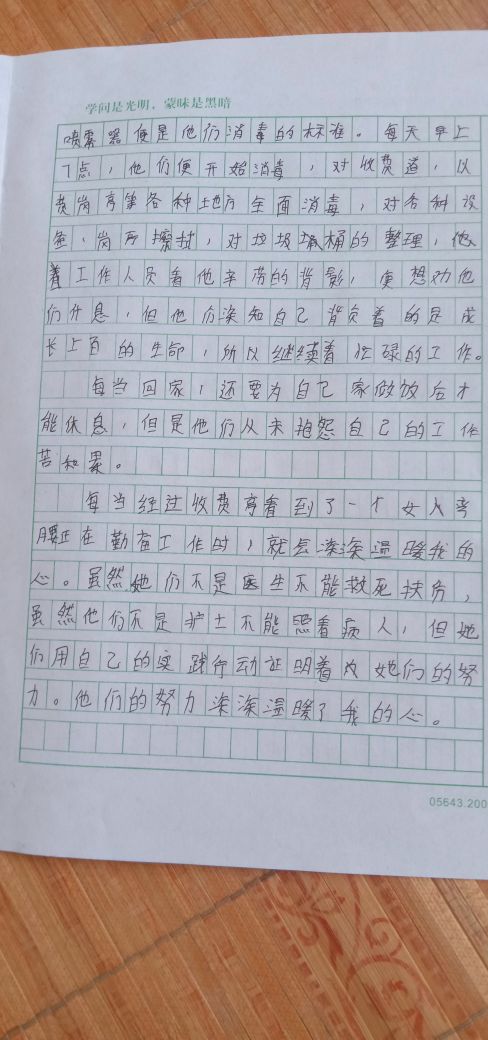 学问是光明，蒙昧是黑暗
喷雾器便是他们消毒的标准。每天早上
7点，他们便开始消毒，对收费道，以
费岗亭等各种地方全面消毒，对各种设
备、岗厕擦拭，对垃圾桶的整理，他
着工作人员看他辛劳的背影，便想劝他
们休息，但他们深知自己背负着的是成
长上百的生命，所以继续着忙碌的工作。
每当回家，还要为自己家做饭后才
能休息，但是他们从未抱怨自己的工作
苦和累。
每当经过收费亭看到了一个女人弯
腰正在勤奋工作时，就会深深温暖我的
心。虽然她们不是医生不能救死扶伤，
虽然他们不是护士不能照着病人，但她
们用自己的实践行动证明着她们的努
力。他们的努力深深温暖了我的心。
05643.200